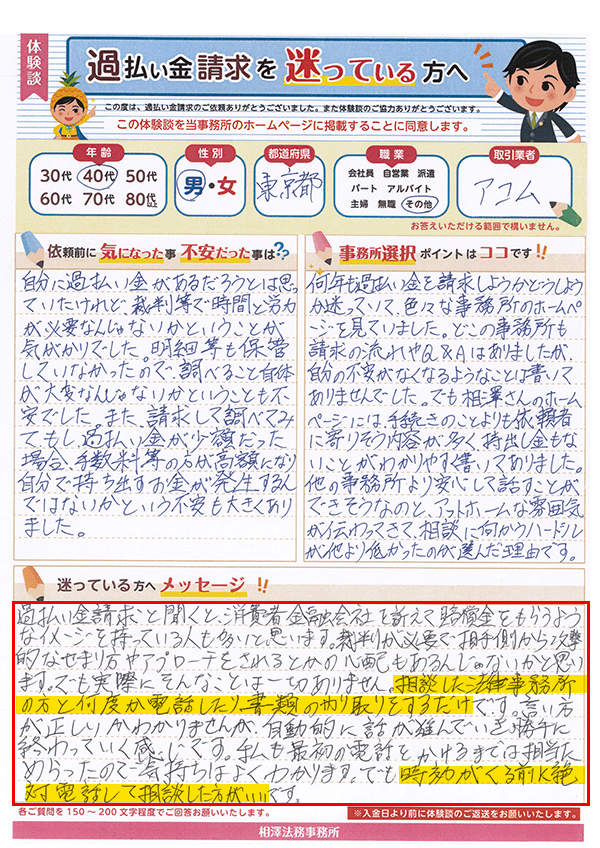 体験談
過払い金請求を迷っている方へ
この度は、過払い金請求のご依頼ありがとうございました。また体験談のご協力ありがとうございます。
この体験談を当事務所のホームページに掲載することに同意します。
年齢
30代 40代 50代
60代 70代 80代以上
性別
男・女
都道府県
東京都
職業
会社員 自営業 派遣
パート アルバイト
主婦 無職 その他
取引業者
アコム
お答えいただける範囲で構いません。
依頼前に気になった事 不安だった事は??
自分に過払い金があるだろうとは思っ
ていたけれど、裁判等で時間と労力
が必要なんじゃないかということが
気がかりでした。明細等も保管
していなかったので、調べること自体
が大変なんじゃないかということも不
安でした。また、請求して調べてみ
ても、過払い金が少額だった
場合、手数料等の方が高額になり
自分で持ち出すお金が発生するん
ではないかという不安も大きくあり
ました。
事務所選択ポイントはココです!!
何年も過払い金を請求しようかどうしよう
か迷っていて、色々な事務所のホームペ
ージを見ていました。どこの事務所も
請求の流れやQ&Aはありましたが、
自分の不安がなくなるようなことは書いて
ありませんでした。でも相澤さんのホーム
ページには、手続きのことよりも依頼者
に寄りそう内容が多く、持出し金もな
いことがわかりやすく書いてありました。
他の事務所より安心して話すことが
できそうなのと、アットホームな雰囲気
が伝わってきて、相談に向かうハードル
が他より低かったのが選んだ理由です。
迷っている方へメッセージ!!
過払い金請求、と聞くと、消費者金融会社を訴えて賠償金をもらうよう
なイメージを持っている人も多いと思います。裁判が必要で相手側から攻撃
的なせまり方やアプローチをされるとかの心配もあるんじゃないかと思い
ます。でも実際にそんなことは一切ありません。相談した法律事務所
の方と何度か電話したり、書類のやり取りをするだけです。言い方
が正しいかわかりませんが、自動的に話が進んでいき、勝手に
終わっていく感じです。私も最初の電話をかけるまでは相当た
めらったので気持ちはよくわかります。でも時効がくる前に絶
対電話して相談した方がいいです。
各ご質問を150～200文字程度でご回答お願いいたします。
※入金日より前に体験談のご返送をお願いいたします。
相澤法務事務所